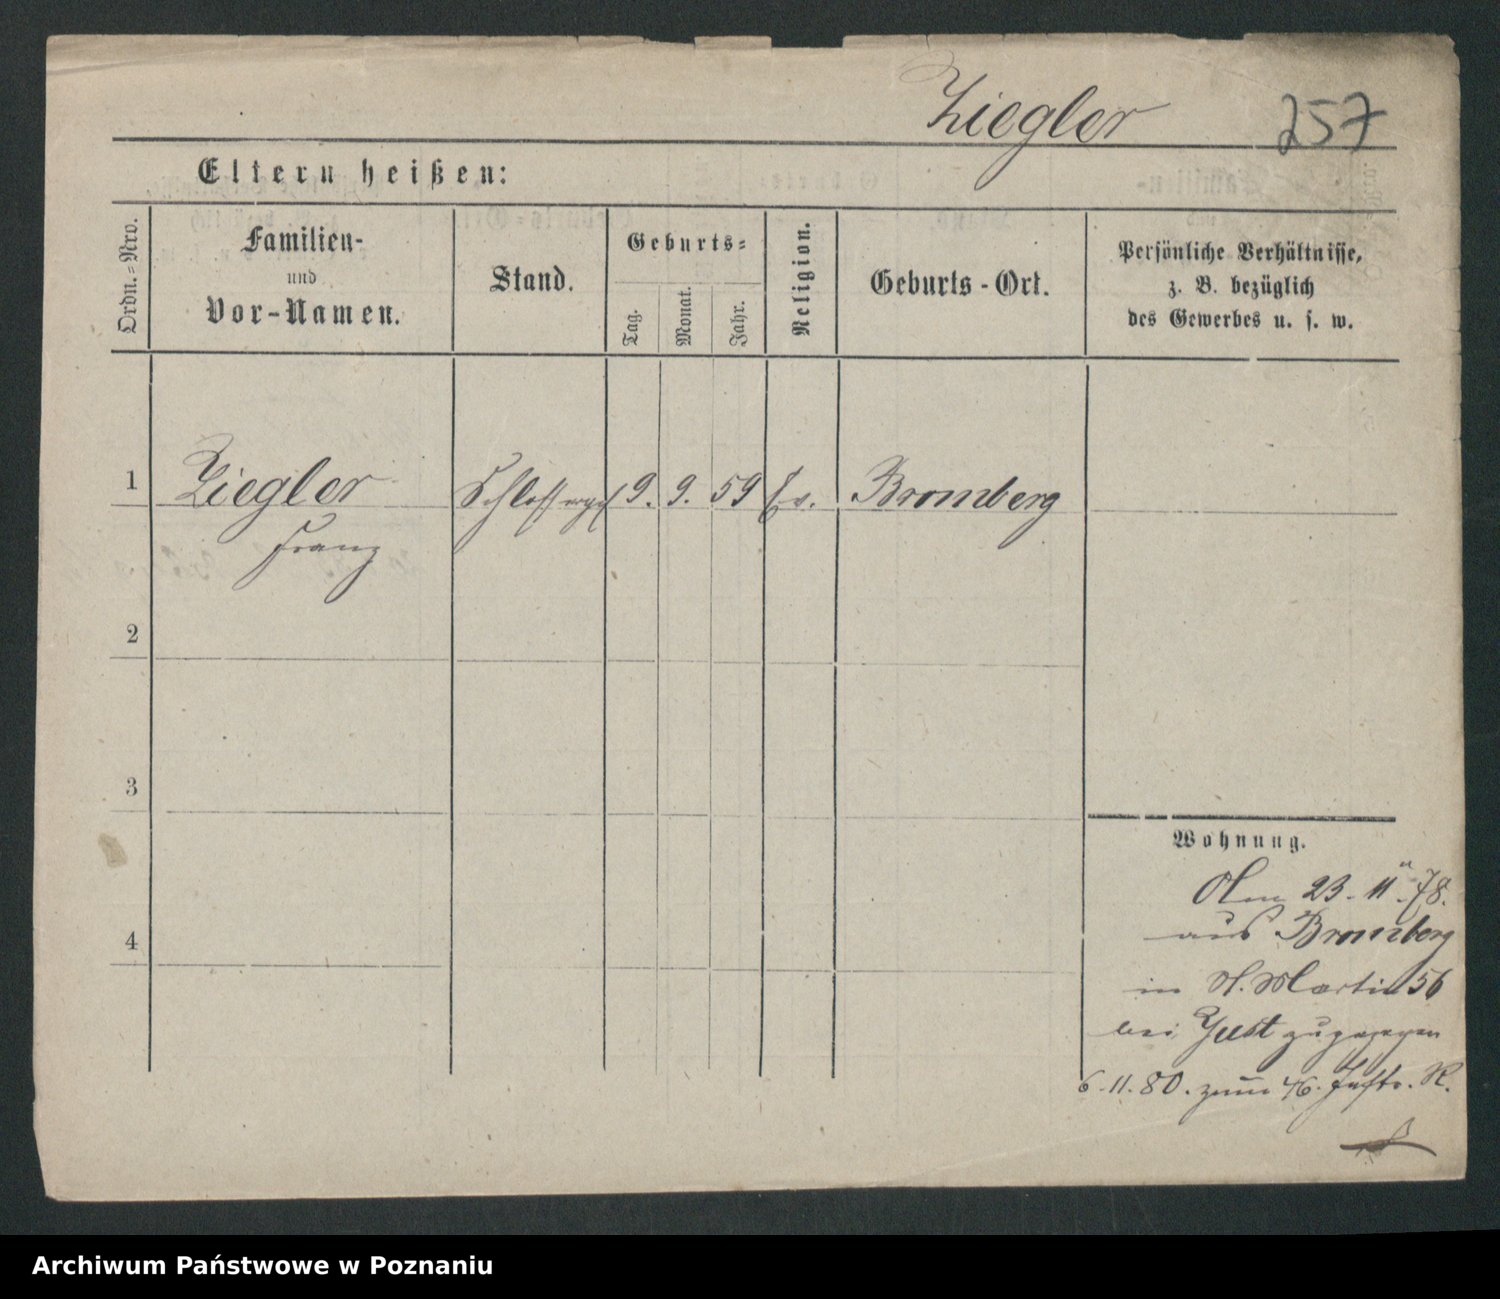 Ziegler 257
Eltern heißen:
Ordn.=Nro.
Familien-
und
Vor-Namen.
Stand.
Geburts=
Tag.
Monat.
Jahr.
Religion.
Geburts-Ort.
Persönliche Verhältnisse,
z. B. bezüglich
des Gewerbes u. s. w.
1 Ziegler Schlosserges 9. 9. 59 Ev. Bromberg
Franz
2
3
4
Wohnung.
Am 23. 11. 78.
aus Bromberg
in St. Martin 56
bei Just zugezogen
6.11.80. zum 46. Inftr. R.
Archiwum Państwowe w Poznaniu